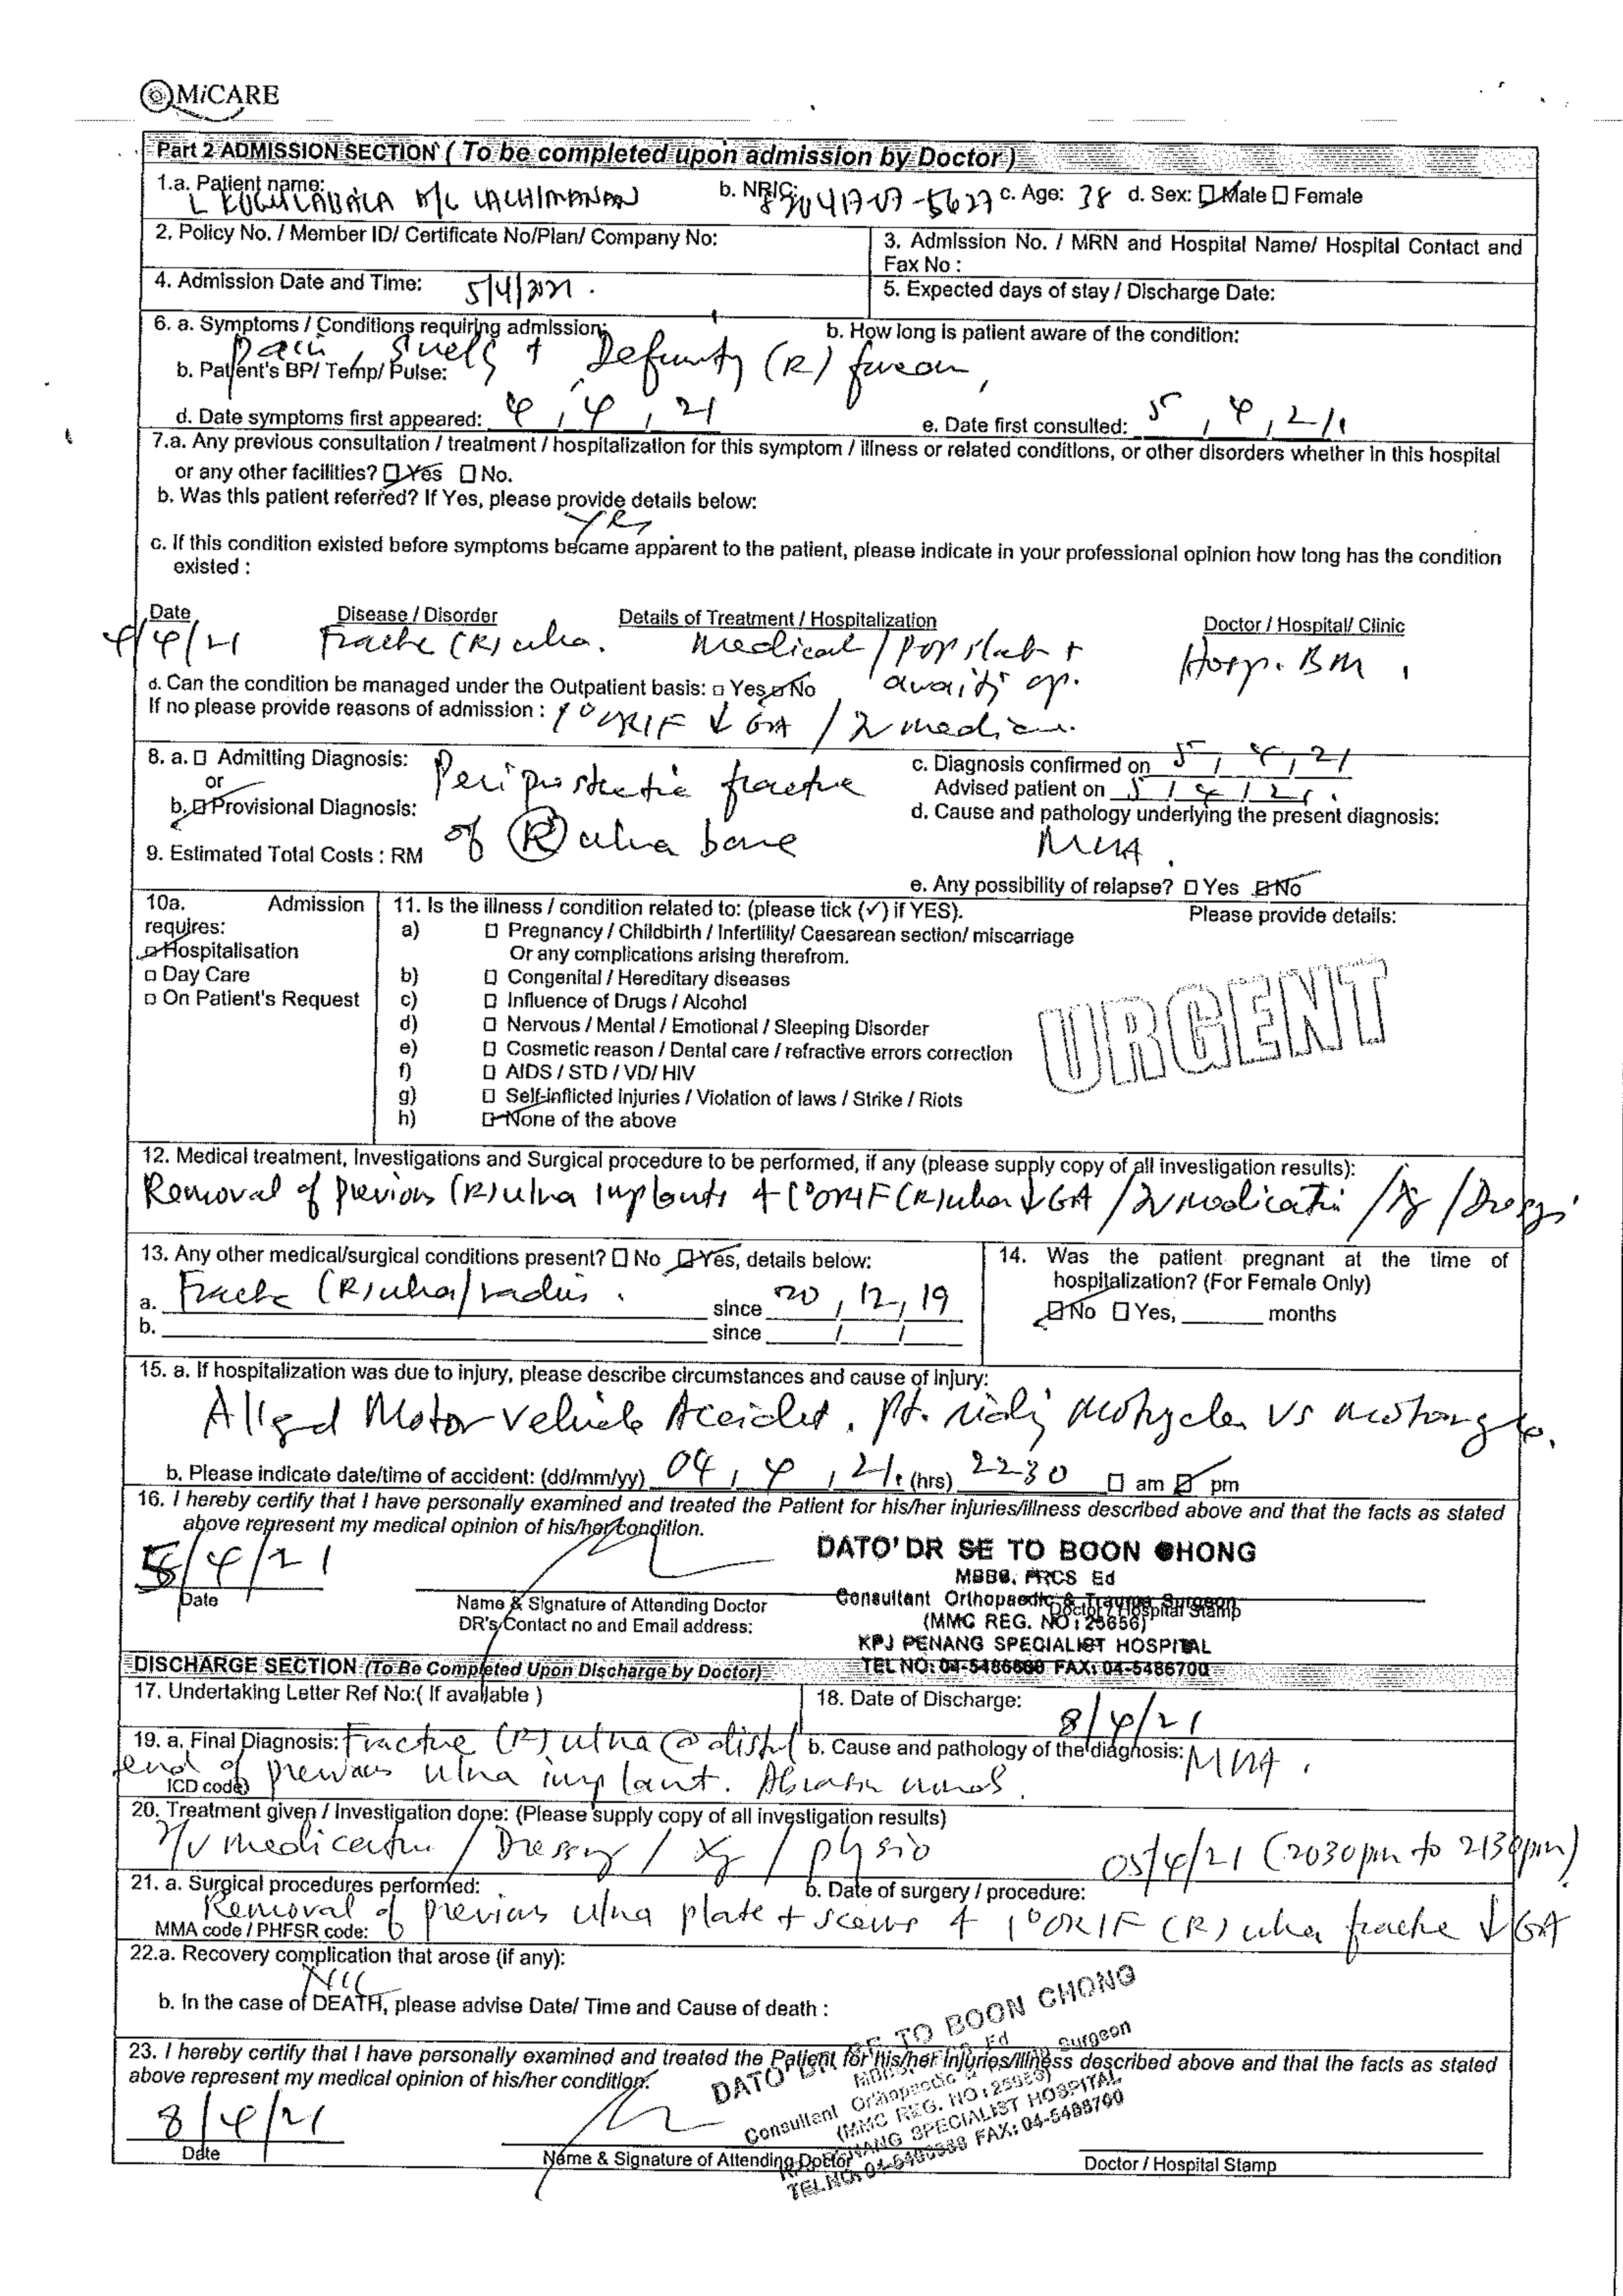 MiCARE
Part 2 ADMISSION SECTION ( To be completed upon admission by Doctor )
1.a. Patient name: L KUGULABALA A/L LACHIMANAN b. NRIC: 830417-07-5627 c. Age: 38 d. Sex: ☑ Male ☐ Female
2. Policy No. / Member ID/ Certificate No/Plan/ Company No:
3. Admission No. / MRN and Hospital Name/ Hospital Contact and
Fax No :
4. Admission Date and Time: 5/4/2021.
5. Expected days of stay / Discharge Date:
6. a. Symptoms / Conditions requiring admission: b. How long is patient aware of the condition:
Pain, Swells + Defumty (R) forearm,
b. Patient's BP/ Temp/ Pulse:
d. Date symptoms first appeared: 4 / 4 / 21 e. Date first consulted: 5 / 4 / 21
7.a. Any previous consultation / treatment / hospitalization for this symptom / illness or related conditions, or other disorders whether in this hospital
or any other facilities? ☑ Yes ☐ No.
b. Was this patient referred? If Yes, please provide details below:
Yes
c. If this condition existed before symptoms became apparent to the patient, please indicate in your professional opinion how long has the condition
existed :
Date Disease / Disorder Details of Treatment / Hospitalization Doctor / Hospital/ Clinic
4/4/21 Fracture (R) ulna. Medical / POP slab + Hosp. BM.
awaits op.
d. Can the condition be managed under the Outpatient basis: ☐ Yes ☑ No
If no please provide reasons of admission : 1° ORIF ↓ GA / IV medication.
8. a. ☐ Admitting Diagnosis:
or
b. ☑ Provisional Diagnosis:
Periprosthetic fracture
of (R) ulna bone
c. Diagnosis confirmed on 5 / 4 / 21
Advised patient on 5 / 4 / 21.
d. Cause and pathology underlying the present diagnosis:
MVA.
9. Estimated Total Costs : RM
e. Any possibility of relapse? ☐ Yes ☑ No
10a. Admission
requires:
☑ Hospitalisation
☐ Day Care
☐ On Patient's Request
11. Is the illness / condition related to: (please tick (✓) if YES). Please provide details:
a) ☐ Pregnancy / Childbirth / Infertility/ Caesarean section/ miscarriage
Or any complications arising therefrom.
b) ☐ Congenital / Hereditary diseases
c) ☐ Influence of Drugs / Alcohol
d) ☐ Nervous / Mental / Emotional / Sleeping Disorder
e) ☐ Cosmetic reason / Dental care / refractive errors correction
f) ☐ AIDS / STD / VD/ HIV
g) ☐ Self-inflicted Injuries / Violation of laws / Strike / Riots
h) ☑ None of the above
URGENT
12. Medical treatment, Investigations and Surgical procedure to be performed, if any (please supply copy of all investigation results):
Removal of previous (R) ulna implants + 1° ORIF (R) ulna ↓ GA / IV medication / /
13. Any other medical/surgical conditions present? ☐ No ☑ Yes, details below:
a. Fracture (R) ulna/radius. since 20 / 12 / 19
b. since / /
14. Was the patient pregnant at the time of
hospitalization? (For Female Only)
☑ No ☐ Yes, ______ months
15. a. If hospitalization was due to injury, please describe circumstances and cause of injury:
Alleged Motor vehicle Accident. Pt. riding motorcycle vs motorcycle.
b. Please indicate date/time of accident: (dd/mm/yy) 04 / 4 / 21. (hrs) 2230 ☐ am ☑ pm
16. I hereby certify that I have personally examined and treated the Patient for his/her injuries/illness described above and that the facts as stated
above represent my medical opinion of his/her condition.
5/4/21
Date
Name & Signature of Attending Doctor
DR's Contact no and Email address:
DATO' DR SE TO BOON CHONG
MBBS, FRCS Ed
Consultant Orthopaedic & Trauma Surgeon
Doctor / Hospital Stamp
(MMC REG. NO: 25656)
KPJ PENANG SPECIALIST HOSPITAL
TEL NO: 04-5486688 FAX: 04-5486700
DISCHARGE SECTION (To Be Completed Upon Discharge by Doctor)
17. Undertaking Letter Ref No:( If available )
18. Date of Discharge: 8/4/21
19. a. Final Diagnosis: Fracture (R) ulna @ distal
end of previous ulna implant. Abrasion wounds.
ICD code)
b. Cause and pathology of the diagnosis: MVA.
20. Treatment given / Investigation done: (Please supply copy of all investigation results)
IV medication / Dressing / / physio
05/4/21 (2030pm to 2130pm)
21. a. Surgical procedures performed: b. Date of surgery / procedure:
Removal of previous ulna plate + screws + 1° ORIF (R) ulna fracture ↓ GA
MMA code / PHFSR code:
22.a. Recovery complication that arose (if any):
Nil
b. In the case of DEATH, please advise Date/ Time and Cause of death :
23. I hereby certify that I have personally examined and treated the Patient for his/her injuries/illness described above and that the facts as stated
above represent my medical opinion of his/her condition.
8/4/21
Date
Name & Signature of Attending Doctor
DATO' DR SE TO BOON CHONG
MBBS, FRCS Ed
Consultant Orthopaedic & Surgeon
(MMC REG. NO: 25656)
KPJ PENANG SPECIALIST HOSPITAL
TEL NO: 04-5486688 FAX: 04-5486700
Doctor / Hospital Stamp